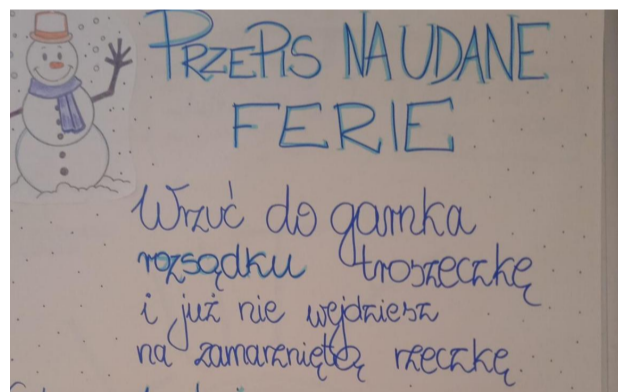 PRZEPIS NA UDANE
FERIE
Wrzuć do garnka
rozsądku troszeczkę
i już nie wejdziesz
na zamarzniętą rzeczkę.